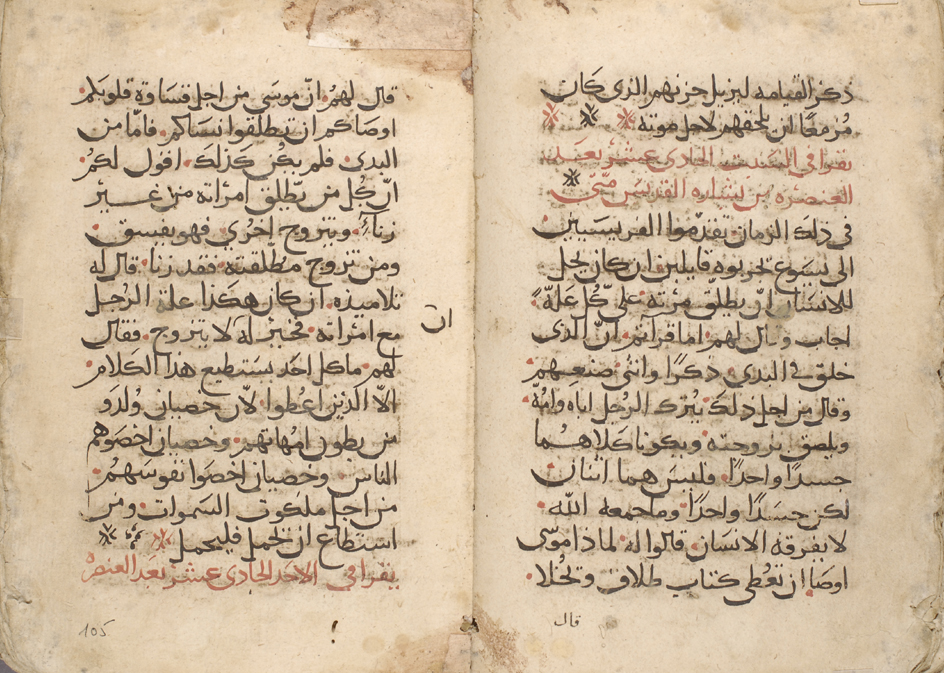 ذكر القيامه ليزيل حزنهم الذي كان
مزمعًا ان يلحقهم لاجل موته
يقرا في السبت الحادي عشر بعد
العنصره من بشاره القديس متّى
في ذلك الزمان تقدّموا الفريسيين
الى يسوع ليجربوه قايلين ان كان يحل
للانسان ان يطلّق مرته على كُل علّة
اجاب وقال لهم اما قرأتم انّ الذي
خلق في البدي ذكرًا وانثى صنعهم
وقال من اجل ذلك يُترك الرّجل اباه وامّه
ويلصق بزوجته ويكونا كلاهما
جسدًا واحدًا فليس هما اثنان
لكن جسَدًا واحدًا وما جمعه الله
لا يفرقه الانسان قالوا له لماذا موسى
اوصا ان تعُطى كتاب طلاق وتُخلا
قال
قال لهمُ انّ موسَى من اجل قسَاوة قلوبكم
اوصَاكم ان تطلّقوا نسَاكم فامّا من
البدي فلم يكن كذلك اقول لكمُ
انّ كُل من يّطلق امرأته من غير
زناءٍ ويتزوج اخُري فهو يفسق
ومن تزوج مطلّقته فقد زنا قال له
تلاميده ان كان هكذا علة الرّجل
مع امرأته فخير له ان لا يتزوج فقال
لهم ما كل احَد يسَتطيع هذا الكلام
الّا الذين اعُطوا لانّ خصيان وُلدو
من بطون امُهاتهم وخصيان اخصَوهم
الناس وخصيان اخصَوا نفوسَهمُ
من اجل ملكوت السَموات ومن
اسَتطاع ان يحتمل فليحتمل
يقرا في الاحَد الحادي عشر بعَد العنصره
105